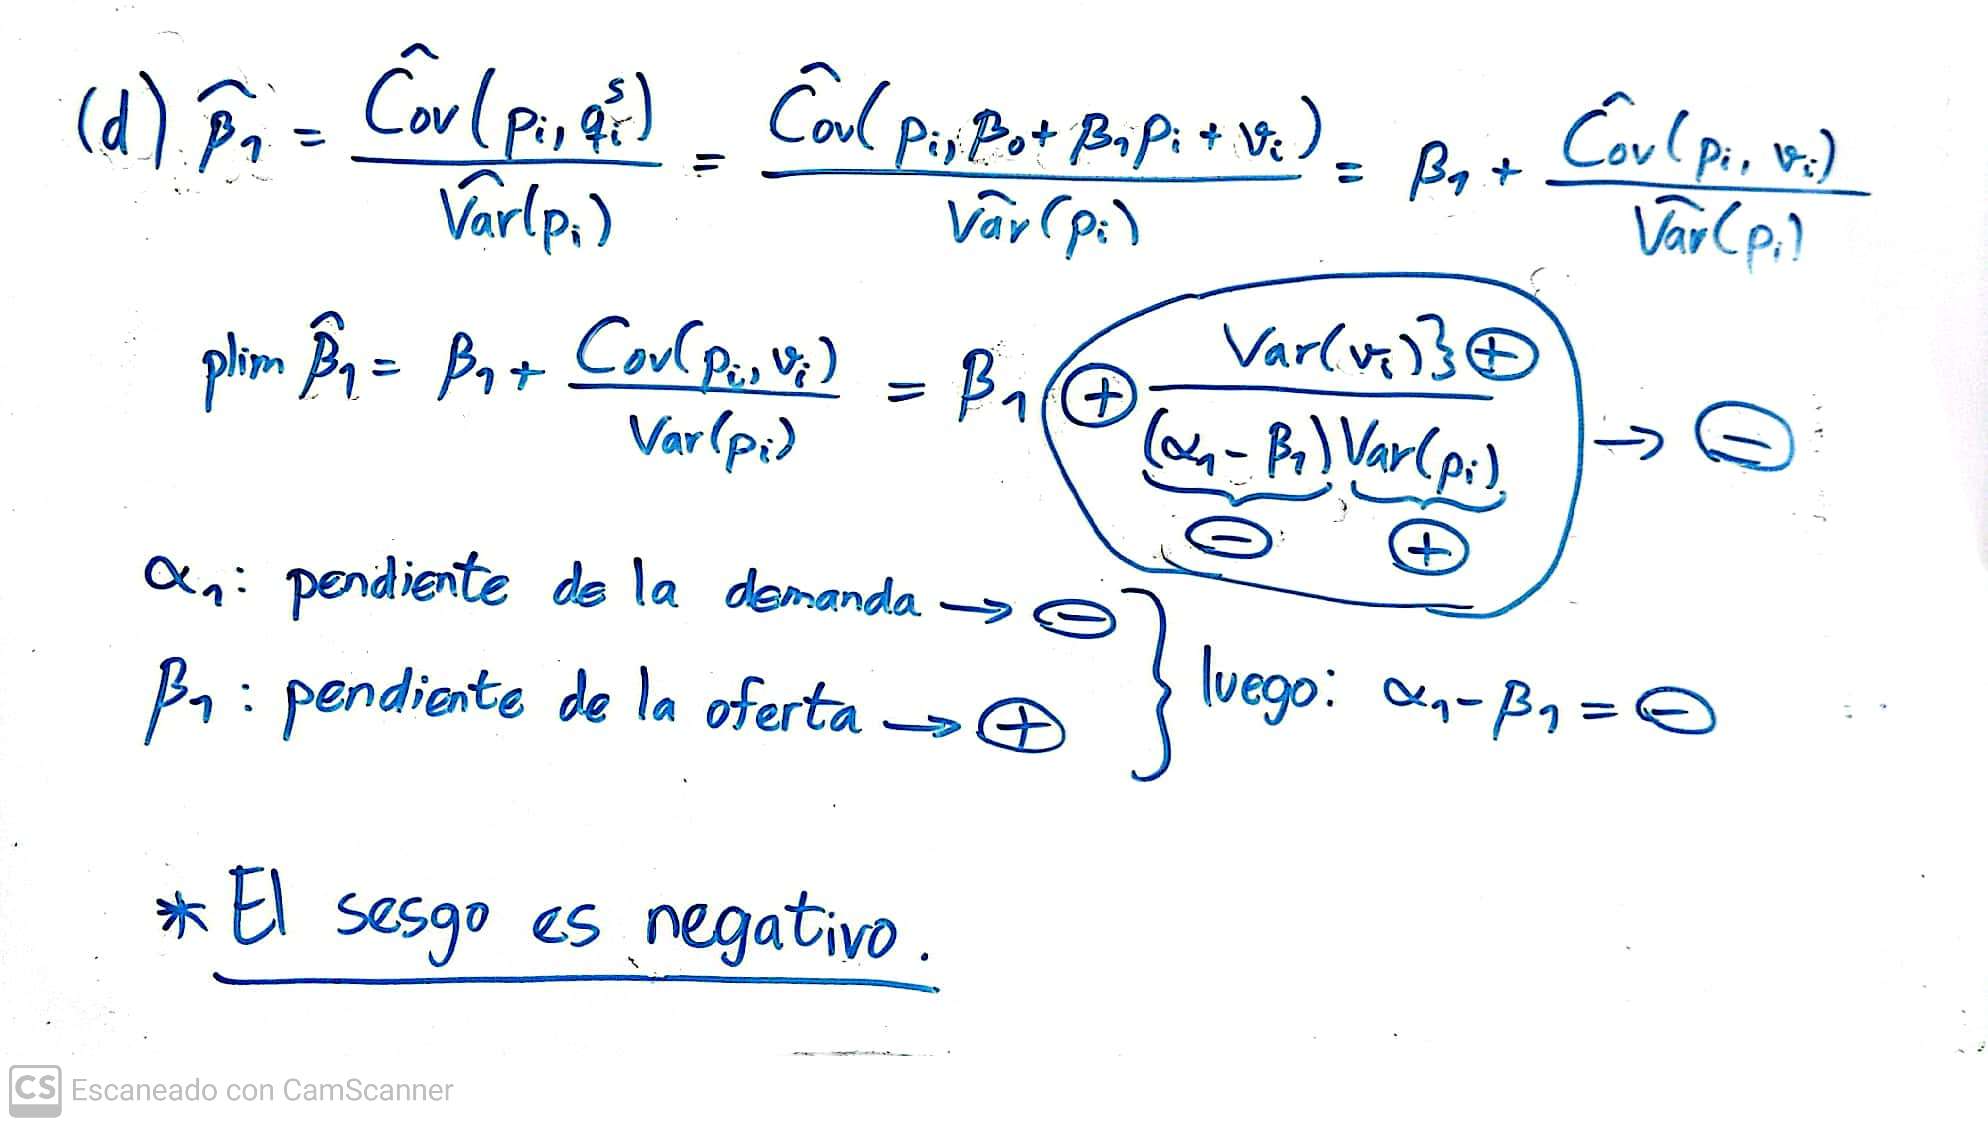 (d) β̂₁ = Ĉov(pᵢ, qᵢˢ) / V̂ar(pᵢ) = Ĉov(pᵢ, β₀ + β₁pᵢ + vᵢ) / V̂ar(pᵢ) = β₁ + Ĉov(pᵢ, vᵢ) / V̂ar(pᵢ)
plim β̂₁ = β₁ + Cov(pᵢ, vᵢ) / Var(pᵢ) = β₁ ⊕ Var(vᵢ)} ⊕ / (α₁ - β₁) Var(pᵢ) → ⊖
⊖ ⊕
α₁: pendiente de la demanda → ⊖
β₁: pendiente de la oferta → ⊕ } luego: α₁ - β₁ = ⊖
* El sesgo es negativo.
CS Escaneado con CamScanner